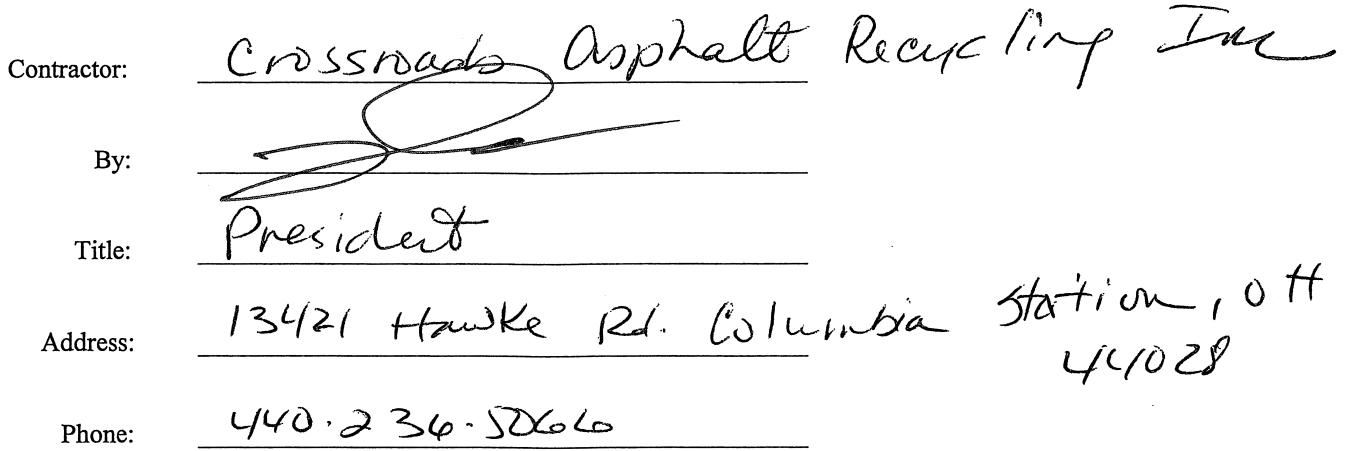 Contractor: Crossroads Asphalt Recycling Inc
By:
Title: President
Address: 13421 Hawke Rd. Columbia Station, OH
44028
Phone: 440.236.5066